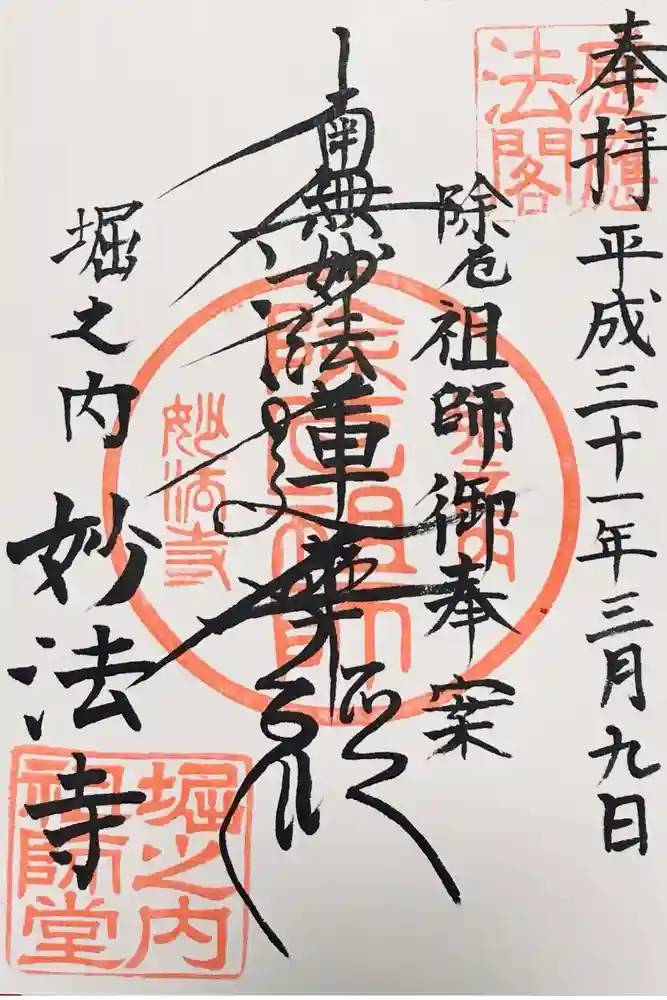 奉拝 平成三十一年三月九日
除厄祖師御奉安
南無妙法蓮華経
堀之内 妙法寺
感應法閣
除厄祖師
妙法寺
堀之内祖師堂